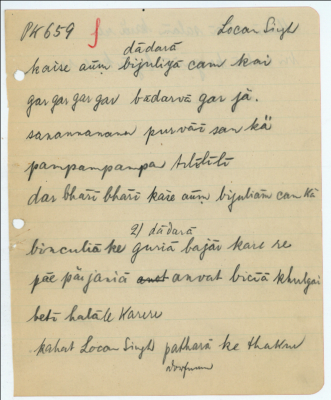 PK 659 ſ Locan Singh
dādarā
kaise aũṃ bijuliyā cam kai
gar gar gar gar badarvā gar jā.
sanannanana purvāī san kā
pampampampa
dar bhārī bhārī kaise aũṃ bijuliā cam kā
2) dādarā
binculiā ke guriā bajāi kare re
pāe pāijaniā anvat biciā khulgai
betī halāle karere
kahat Locan Singh patharā ke